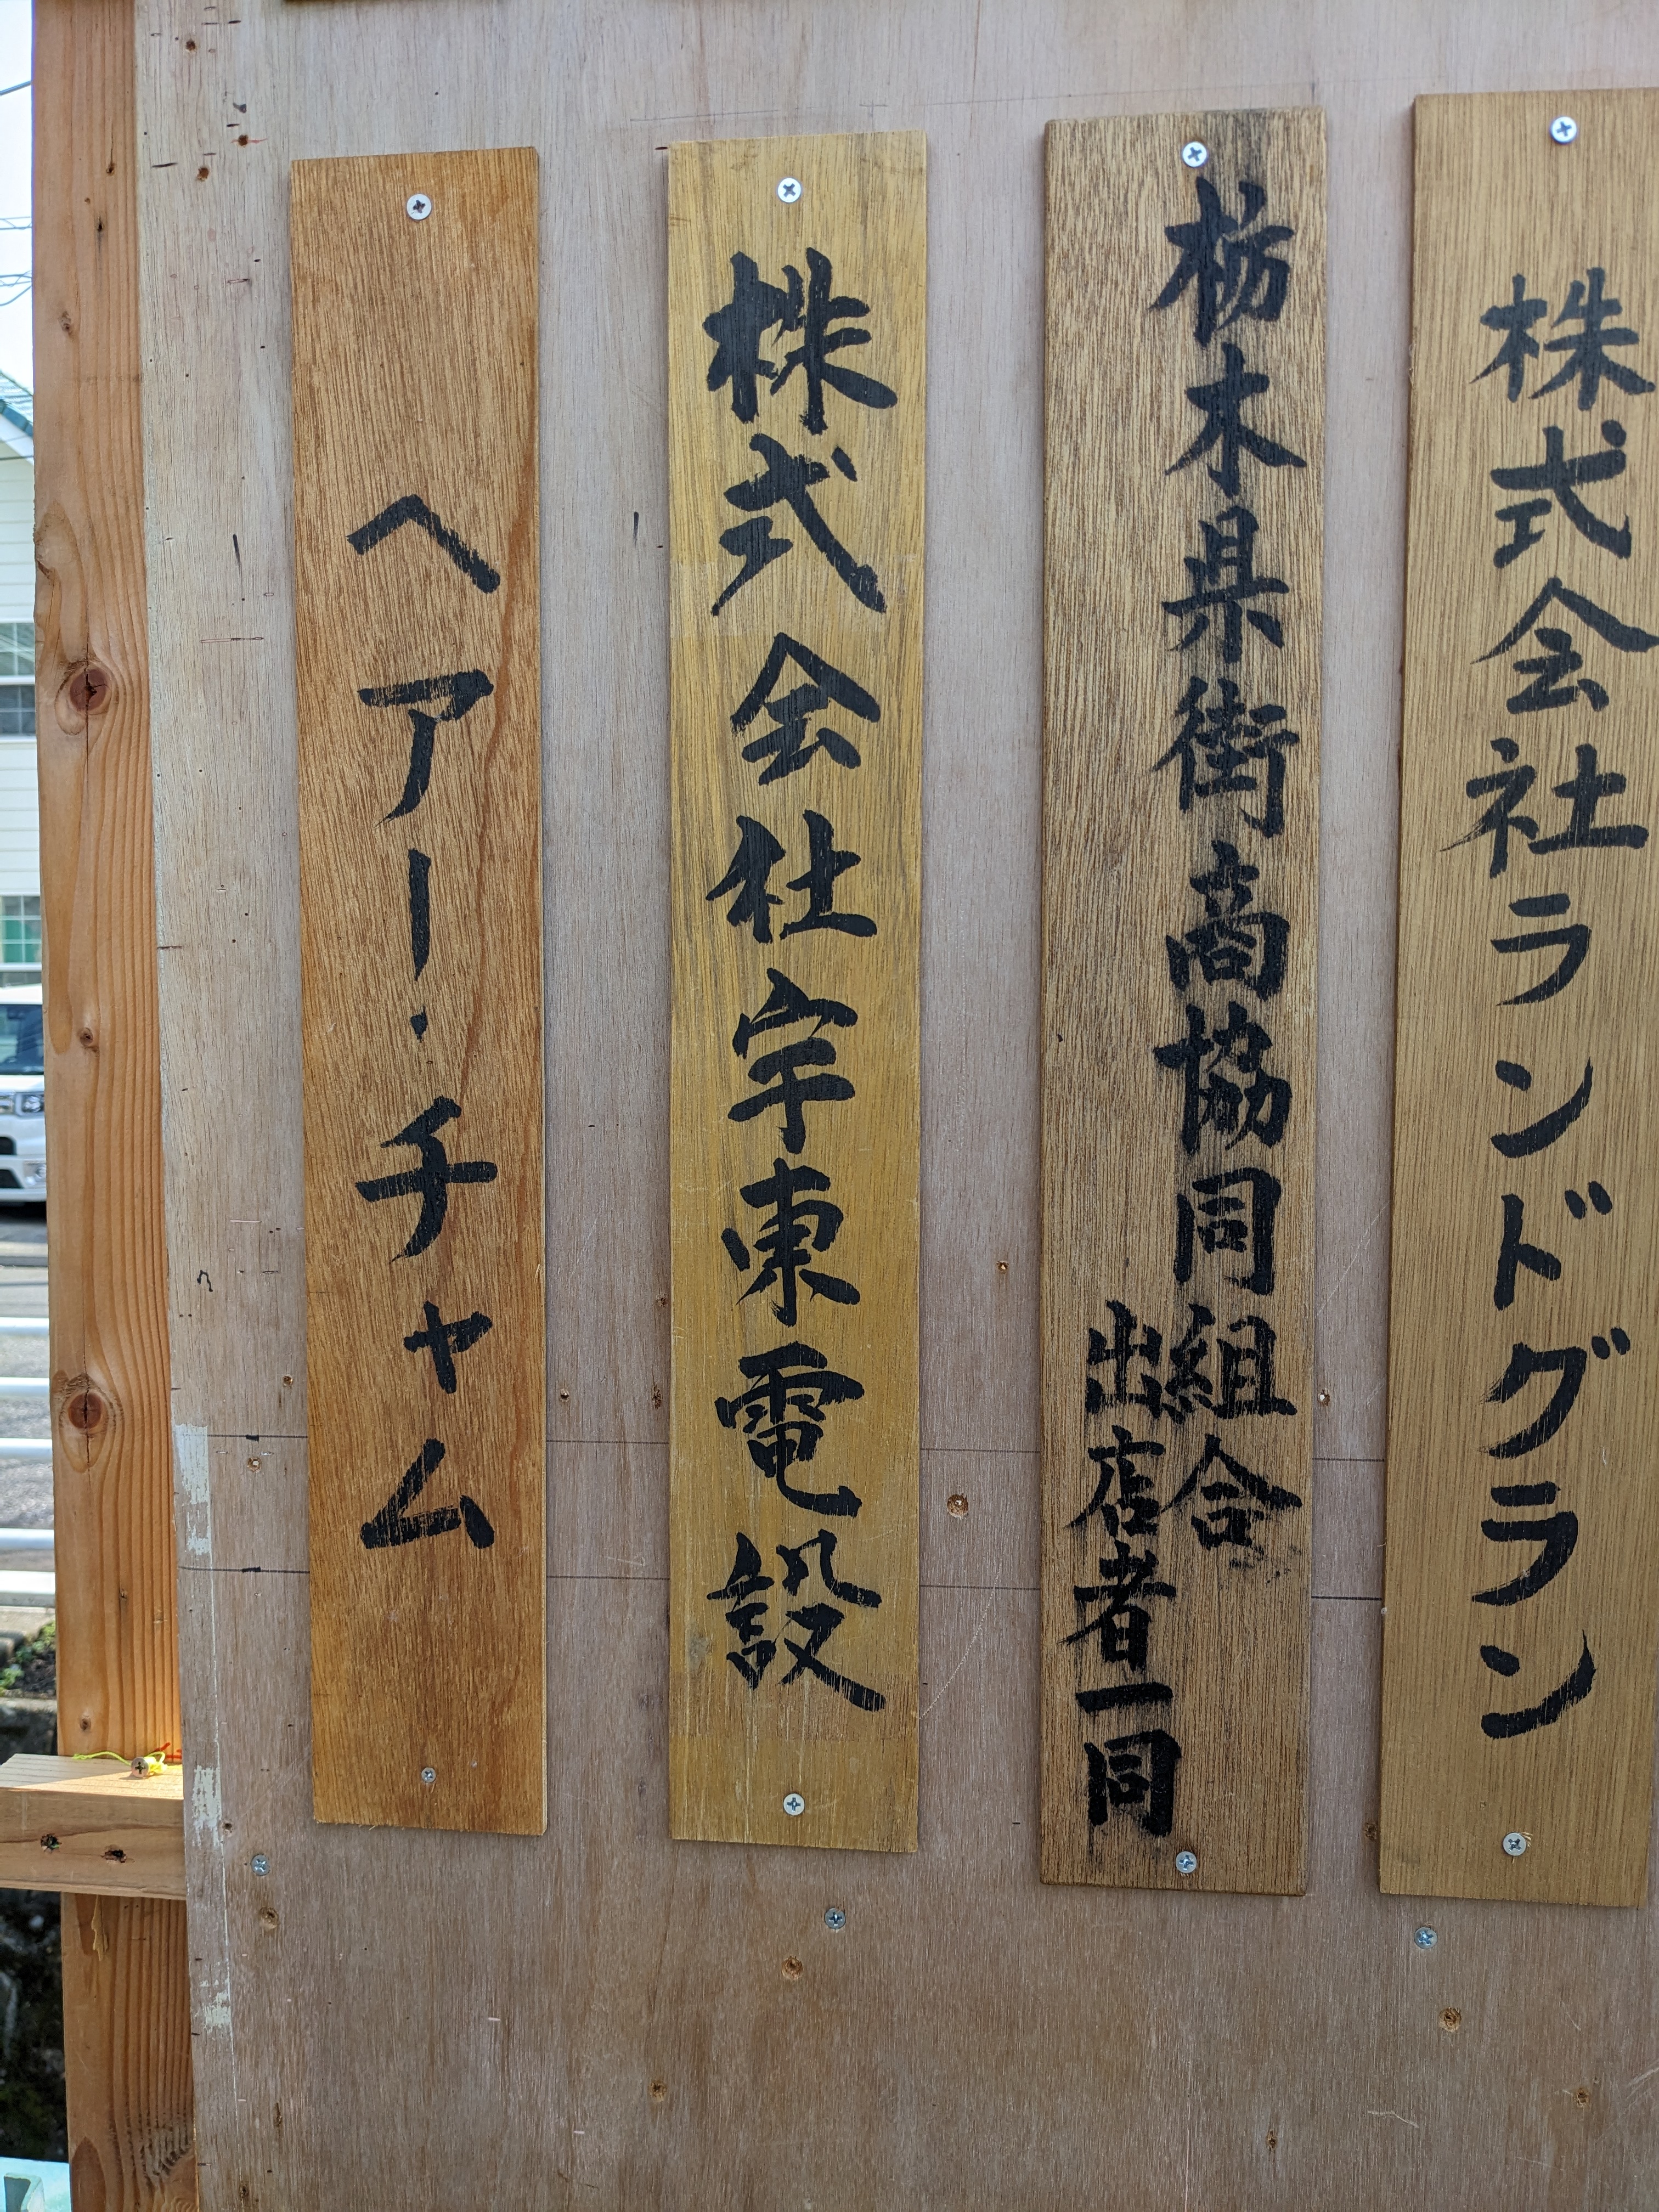 株式会社ランドグラン
栃木県街商協同組合
出店者一同
株式会社宇東電設
ヘアー・チャーム